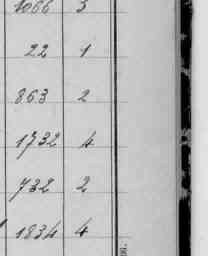 1066 3
22 1
863 2
1732 4
732 2
1834 4